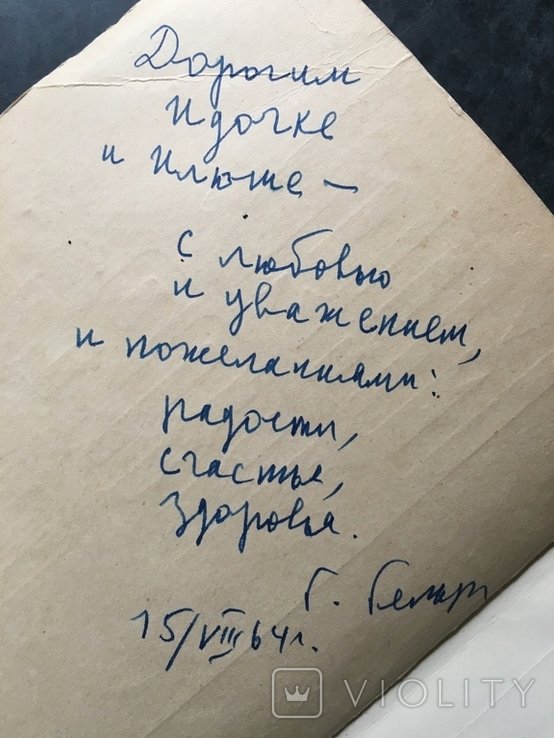 Дорогим
Идочке
и Илюше —
с любовью
и уважением,
и пожеланиями:
радости,
счастья,
здоровья.
Г.
15/VIII 64 г.
VIOLITY